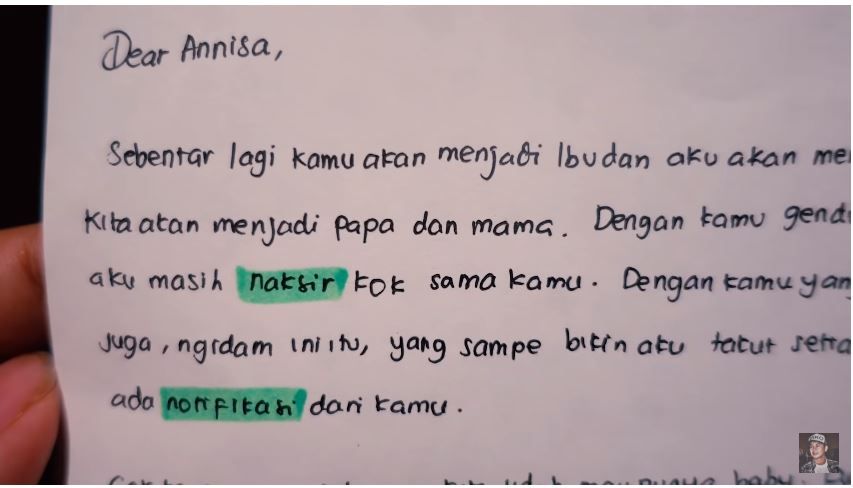 Dear Annisa,
Sebentar lagi kamu akan menjadi Ibu dan aku akan me
Kita akan menjadi papa dan mama. Dengan kamu gend
aku masih naksir kok sama kamu. Dengan kamu yan
juga, ngidam ini itu, yang sampe bikin aku takut seti
ada notifikasi dari kamu.
baby.